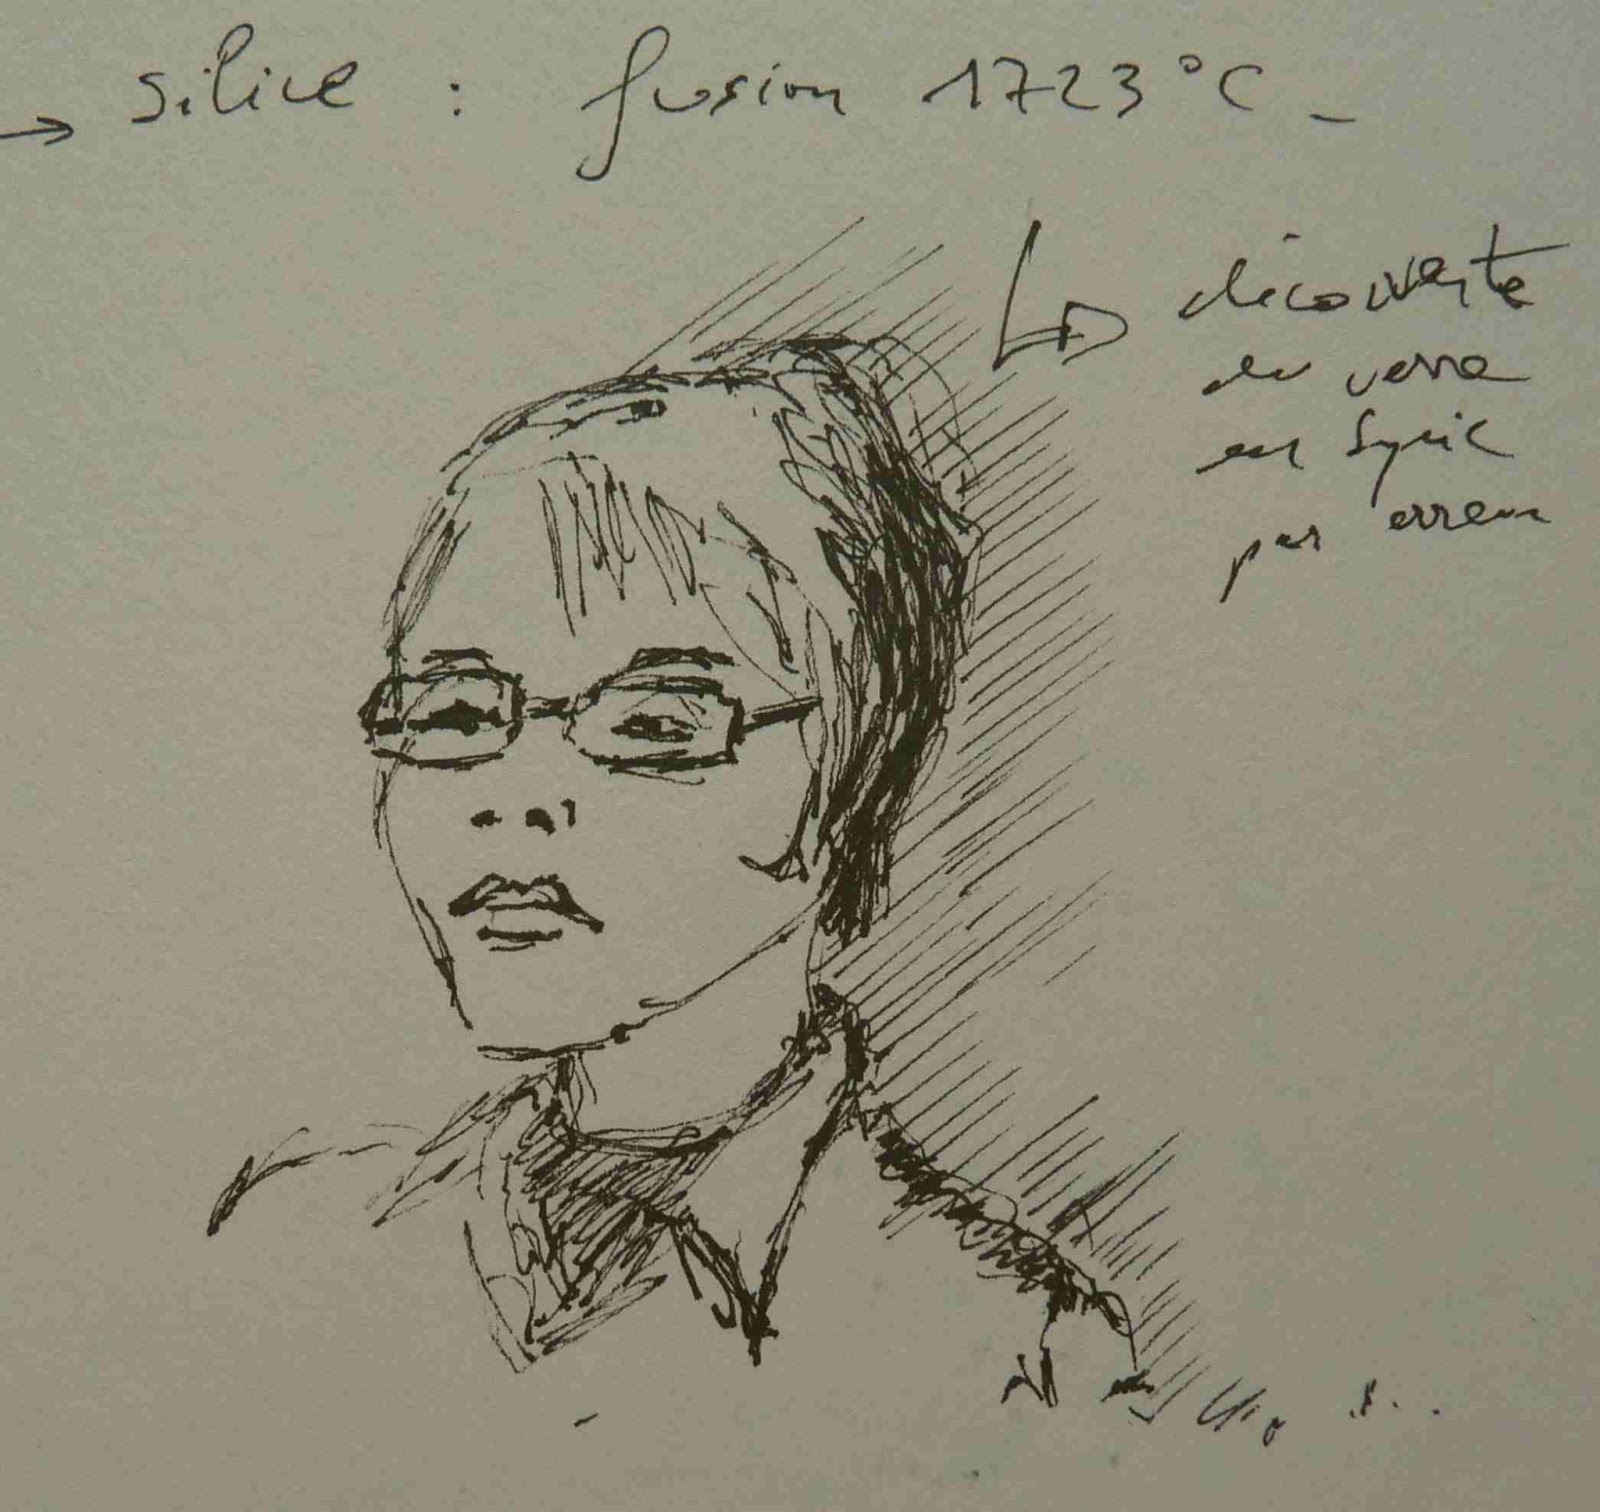 → silice : fusion 1723°C -
↳ découverte
du verre
en Syrie
par erreur